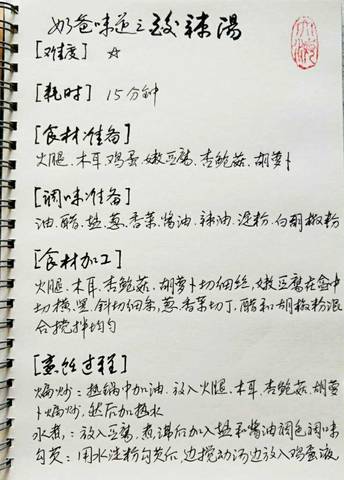 奶爸味道之酸辣汤
[难度] ☆
[耗时] 15分钟
[食材准备]
火腿、木耳、鸡蛋、嫩豆腐、杏鲍菇、胡萝卜
[调味准备]
油、醋、盐、葱、香菜、酱油、辣油、淀粉、白胡椒粉
[食材加工]
火腿、木耳、杏鲍菇、胡萝卜切细丝,嫩豆腐在盒中
切横、竖、斜切细条,葱、香菜切丁,醋和胡椒粉混
合搅拌均匀
[烹饪过程]
煸炒:热锅中加油,放入火腿、木耳、杏鲍菇、胡萝
卜煸炒,然后加热水
水煮:放入豆腐,煮沸后加入盐和酱油调色调味
勾芡:用水淀粉勾芡后,边搅动汤边放入鸡蛋液